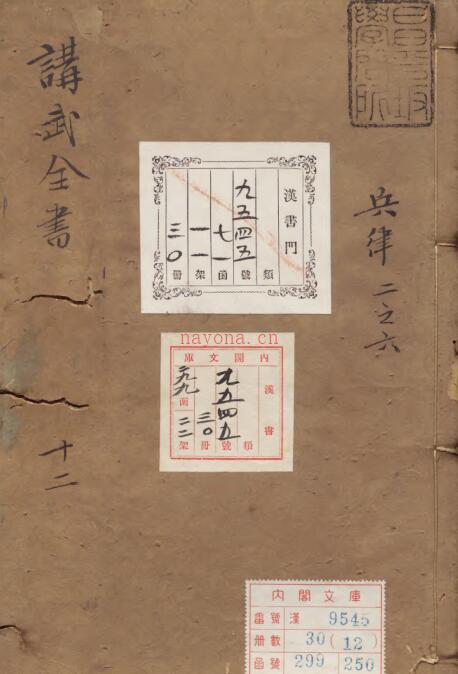 講武全書
十二
兵律 二之六
漢書門
類
九五四五號
七一函
一一架
三〇冊
nayona.cn
內閣文庫
漢書
九五四五
類號冊架
三〇
函
二二
內閣文庫
番號 漢 9545
冊數 30 (12)
函號 299 250